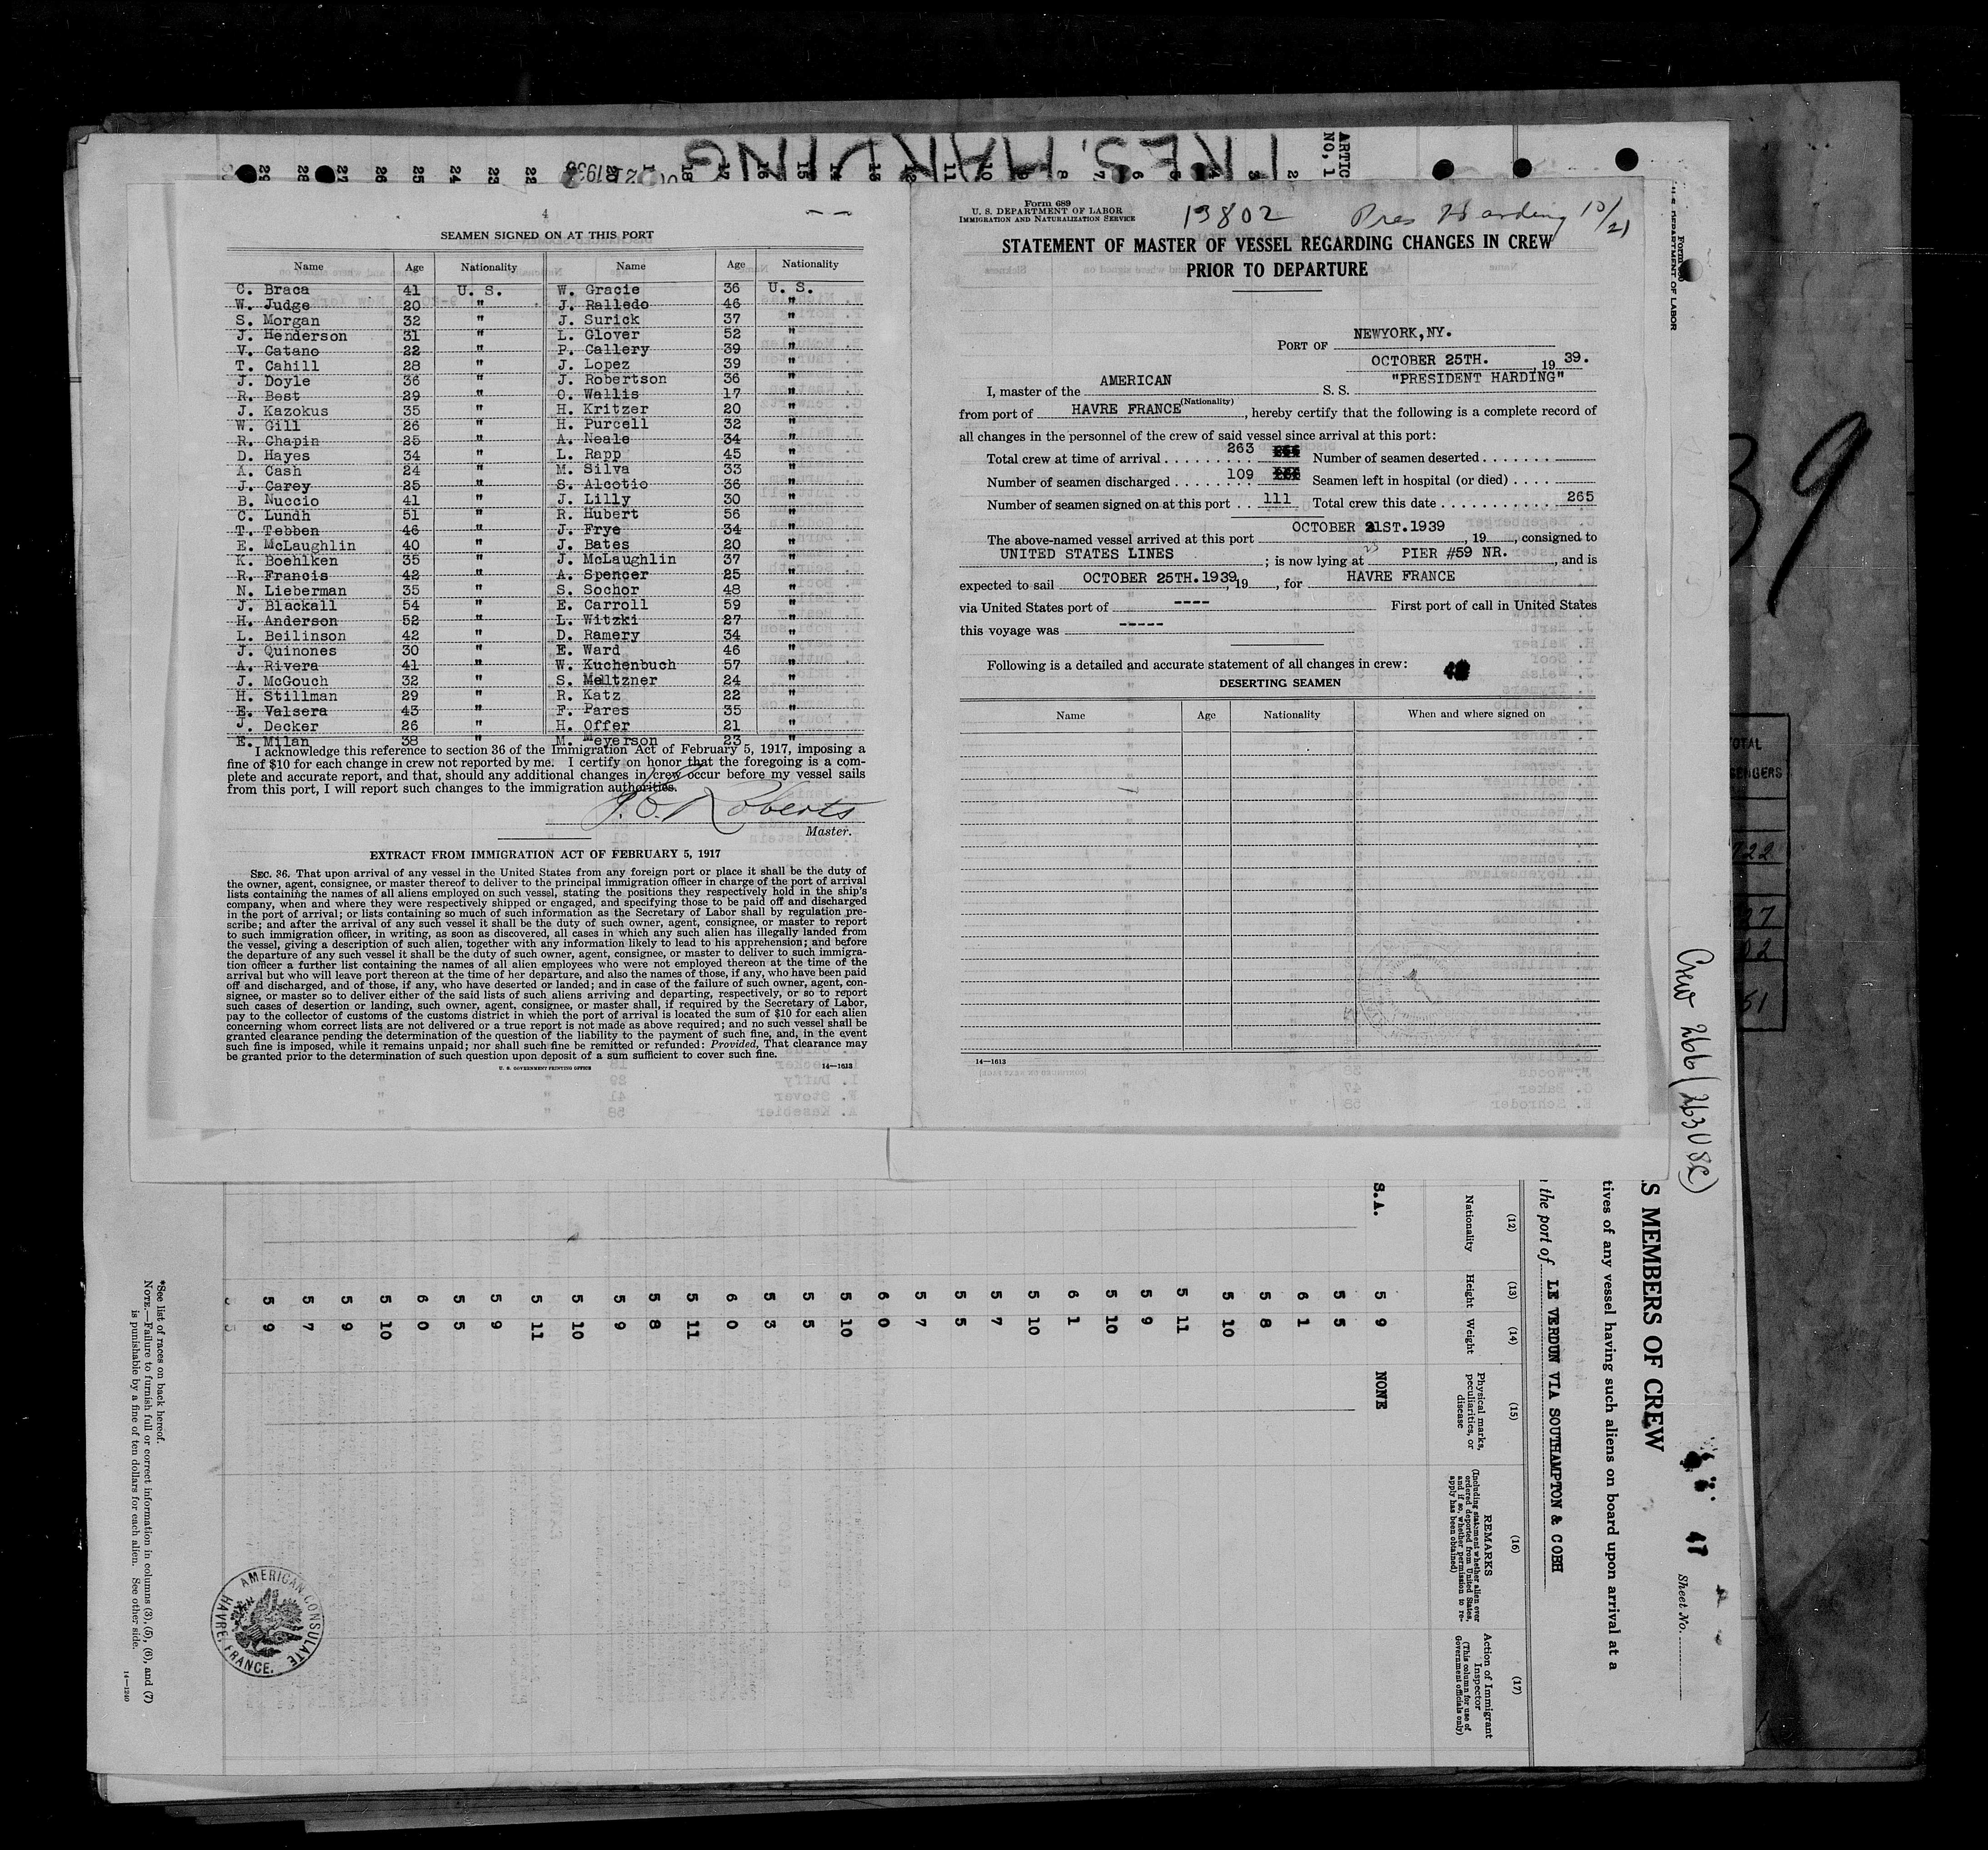 4
SEAMEN SIGNED ON AT THIS PORT
Name Age Nationality Name Age Nationality
C. Braca 41 U. S. W. Gracie 36 U. S.
W. Judge 20 " J. Ralledo 46 "
S. Morgan 32 " J. Surick 37 "
J. Henderson 31 " L. Glover 52 "
V. Catano 22 " P. Callery 39 "
T. Cahill 28 " J. Lopez 39 "
J. Doyle 36 " J. Robertson 36 "
R. Best 29 " O. Wallis 17 "
J. Kazokus 35 " H. Kritzer 20 "
W. Gill 26 " H. Purcell 32 "
R. Chapin 25 " A. Neale 34 "
D. Hayes 34 " L. Rapp 45 "
A. Cash 24 " M. Silva 33 "
J. Carey 25 " S. Alcotio 36 "
B. Nuccio 41 " J. Lilly 30 "
C. Lundh 51 " R. Hubert 56 "
T. Tebben 46 " J. Frye 34 "
E. McLaughlin 40 " J. Bates 20 "
K. Boehlken 35 " J. McLaughlin 37 "
R. Francis 42 " A. Spencer 25 "
N. Lieberman 35 " S. Sochor 48 "
J. Blackall 54 " E. Carroll 59 "
H. Anderson 52 " L. Witzki 27 "
L. Beilinson 42 " D. Ramery 34 "
J. Quinones 30 " E. Ward 46 "
A. Rivera 41 " W. Kuchenbuch 57 "
J. McGouch 32 " S. Meltzner 24 "
H. Stillman 29 " R. Katz 22 "
E. Valsera 43 " F. Pares 35 "
J. Decker 26 " H. Offer 21 "
E. Milan 38 " M. Meyerson 23 "
I acknowledge this reference to section 36 of the Immigration Act of February 5, 1917, imposing a
fine of $10 for each change in crew not reported by me. I certify on honor that the foregoing is a com-
plete and accurate report, and that, should any additional changes in crew occur before my vessel sails
from this port, I will report such changes to the immigration authorities.
J. E. Roberts
Master.
EXTRACT FROM IMMIGRATION ACT OF FEBRUARY 5, 1917
SEC. 36. That upon arrival of any vessel in the United States from any foreign port or place it shall be the duty of
the owner, agent, consignee, or master thereof to deliver to the principal immigration officer in charge of the port of arrival
lists containing the names of all aliens employed on such vessel, stating the positions they respectively hold in the ship's
company, when and where they were respectively shipped or engaged, and specifying those to be paid off and discharged
in the port of arrival; or lists containing so much of such information as the Secretary of Labor shall by regulation pre-
scribe; and after the arrival of any such vessel it shall be the duty of such owner, agent, consignee, or master to report
to such immigration officer, in writing, as soon as discovered, all cases in which any such alien has illegally landed from
the vessel, giving a description of such alien, together with any information likely to lead to his apprehension; and before
the departure of any such vessel it shall be the duty of such owner, agent, consignee, or master to deliver to such immigra-
tion officer a further list containing the names of all alien employees who were not employed thereon at the time of the
arrival but who will leave port thereon at the time of her departure, and also the names of those, if any, who have been paid
off and discharged, and of those, if any, who have deserted or landed; and in case of the failure of such owner, agent, con-
signee, or master so to deliver either of the said lists of such aliens arriving and departing, respectively, or so to report
such cases of desertion or landing, such owner, agent, consignee, or master shall, if required by the Secretary of Labor,
pay to the collector of customs of the customs district in which the port of arrival is located the sum of $10 for each alien
concerning whom correct lists are not delivered or a true report is not made as above required; and no such vessel shall be
granted clearance pending the determination of the question of the liability to the payment of such fine, and, in the event
such fine is imposed, while it remains unpaid; nor shall such fine be remitted or refunded: Provided, That clearance may
be granted prior to the determination of such question upon deposit of a sum sufficient to cover such fine.
U. S. GOVERNMENT PRINTING OFFICE 14—1613
Form 689
U. S. DEPARTMENT OF LABOR
IMMIGRATION AND NATURALIZATION SERVICE
19802 Pres Harding 10/21
STATEMENT OF MASTER OF VESSEL REGARDING CHANGES IN CREW
PRIOR TO DEPARTURE
PORT OF NEWYORK,NY.
OCTOBER 25TH. , 19 39.
I, master of the AMERICAN S. S. "PRESIDENT HARDING"
(Nationality)
from port of HAVRE FRANCE , hereby certify that the following is a complete record of
all changes in the personnel of the crew of said vessel since arrival at this port:
Total crew at time of arrival 263 Number of seamen deserted
Number of seamen discharged 109 Seamen left in hospital (or died)
Number of seamen signed on at this port 111 Total crew this date 265
The above-named vessel arrived at this port OCTOBER 21ST.1939 , 19 , consigned to
UNITED STATES LINES ; is now lying at PIER #59 NR. , and is
expected to sail OCTOBER 25TH.1939 , 19 , for HAVRE FRANCE
via United States port of ---- First port of call in United States
this voyage was -----
Following is a detailed and accurate statement of all changes in crew:
DESERTING SEAMEN
Name Age Nationality When and where signed on
14—1613
PRES. HARDING
ARTIC
NO, 1
2 3 4 5 6 7 8 9 10 11 12 13 14 15 16 17 18
22 23 24 25 26 27 28 29
DEPARTMENT OF LABOR
39
TOTAL
Crew 266 (263 USC)
S MEMBERS OF CREW
Sheet No.
tives of any vessel having such aliens on board upon arrival at a
the port of LE VERDUN VIA SOUTHAMPTON & COBH
(12) (13) (14) (15) (16) (17)
Nationality
Height
Weight
Physical marks, peculiarities, or disease
REMARKS
(Including statement whether alien ever ordered deported from United States, and if so, whether permission to re-apply has been obtained)
Action of Immigrant Inspector
(This column for use of Government officials only)
S.A. 5 9 NONE
5 5
6 1
5 8
5 10
5 11
5 9
5 10
6 1
5 10
5 7
5 5
5 7
6 0
5 10
5 5
5 3
6 0
5 11
5 8
5 9
5 10
5 11
5 9
5 5
6 0
5 10
5 9
5 7
5 9
AMERICAN CONSULATE
HAVRE, FRANCE.
*See list of races on back hereof.
NOTE.—Failure to furnish full or correct information in columns (3), (5), (6), and (7)
is punishable by a fine of ten dollars for each alien. See other side.
14—1240